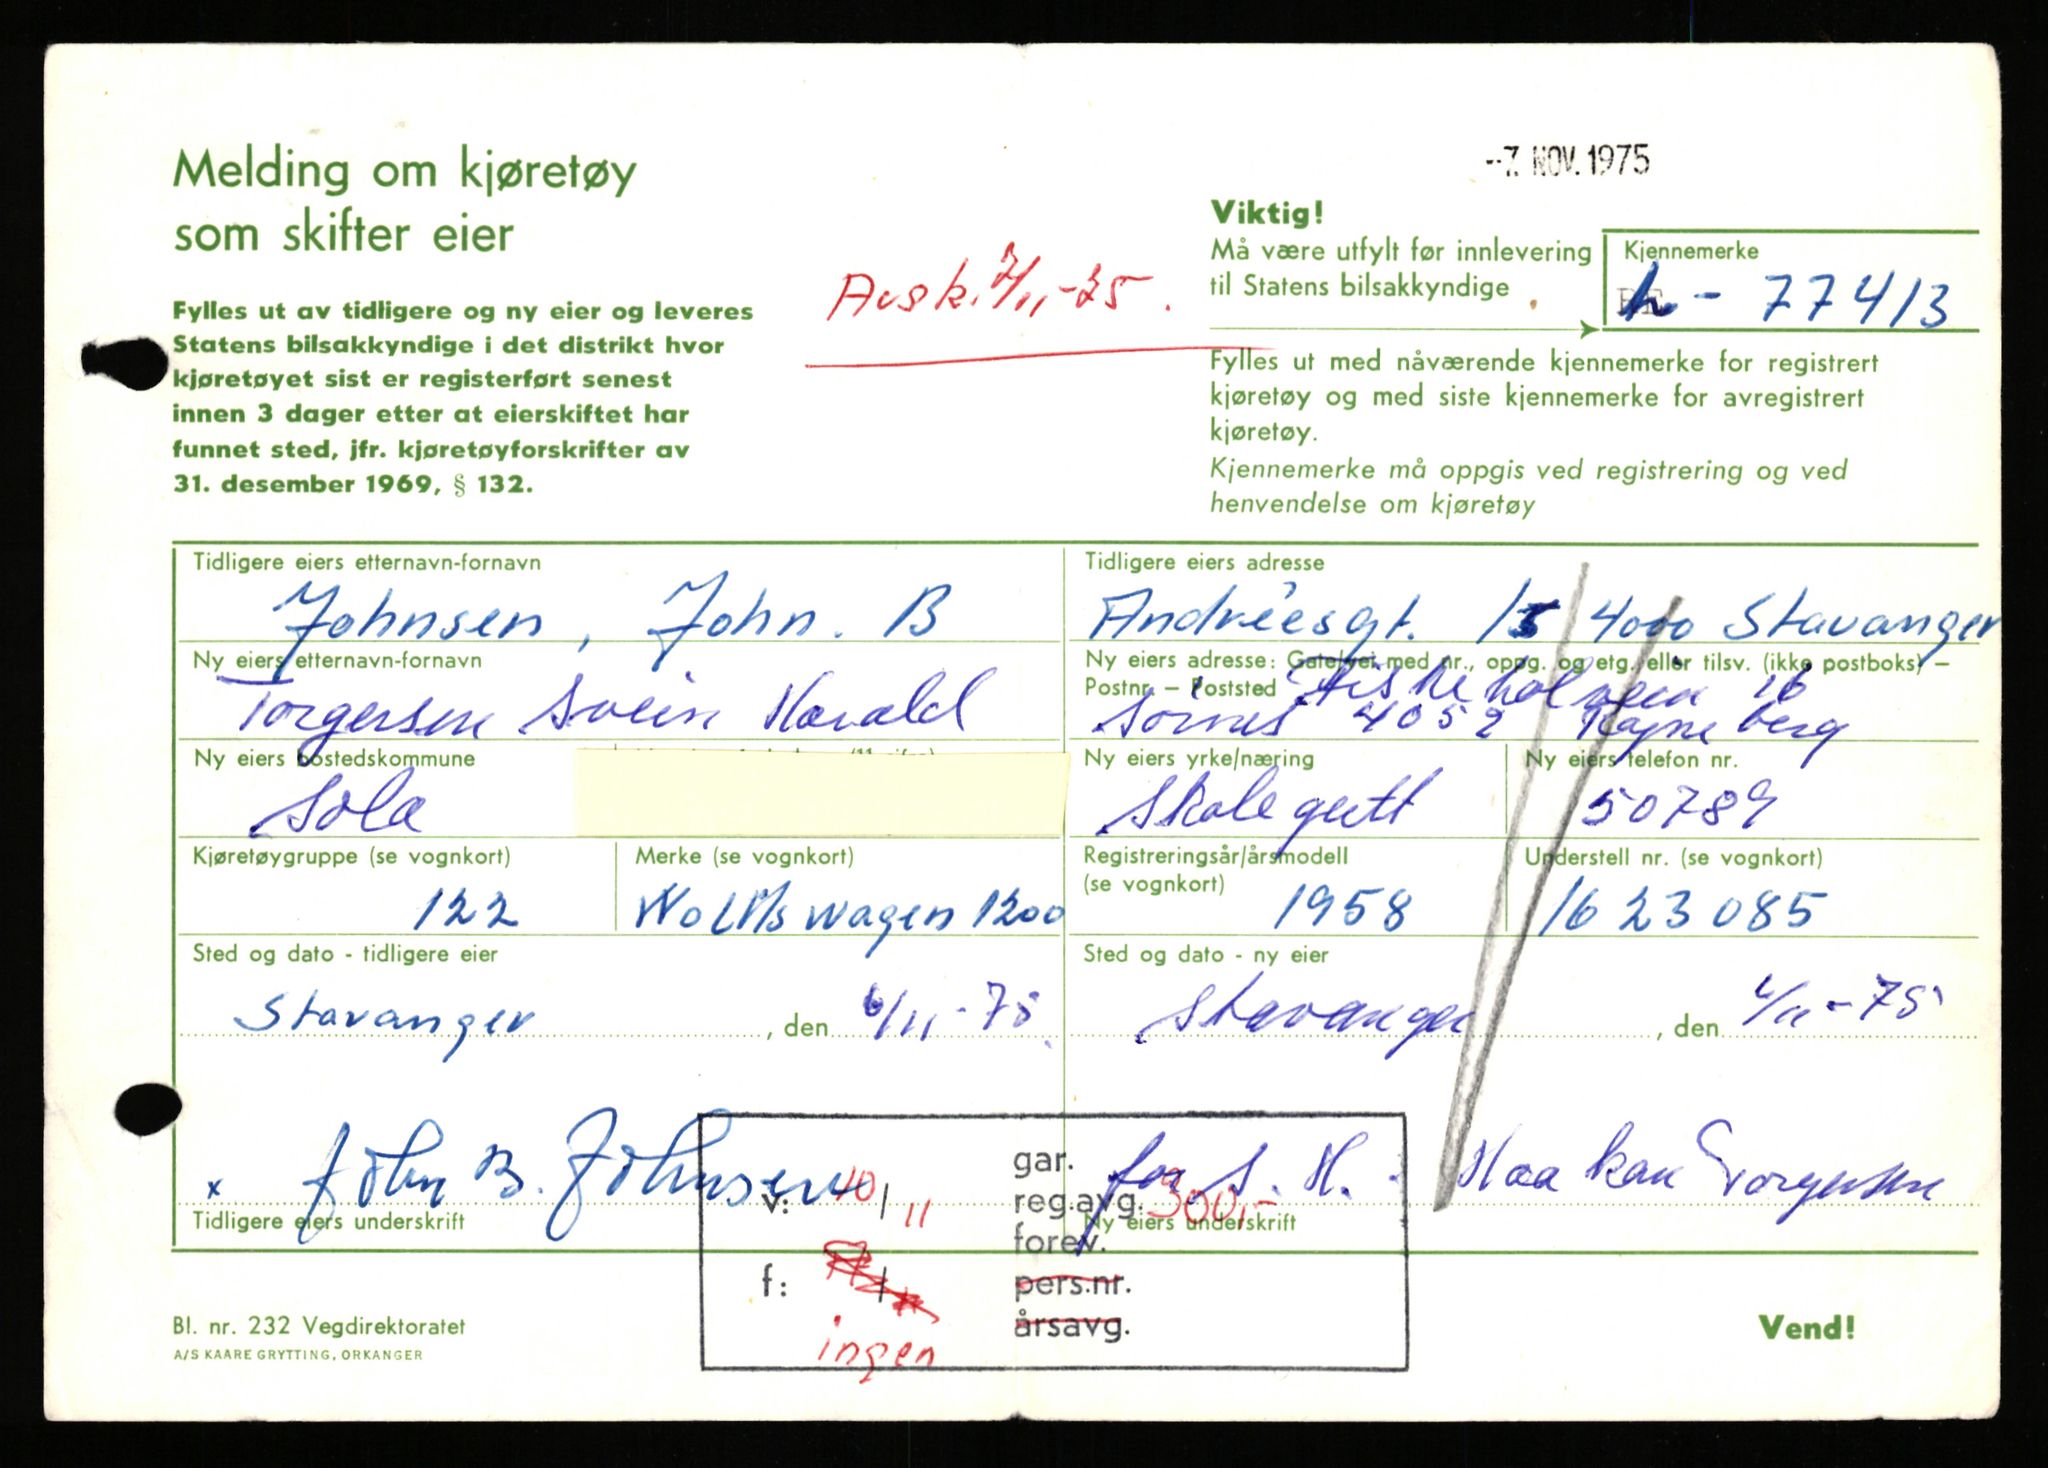 Melding om kjøretøy
som skifter eier
Fylles ut av tidligere og ny eier og leveres
Statens bilsakkyndige i det distrikt hvor
kjøretøyet sist er registerført senest
innen 3 dager etter at eierskiftet har
funnet sted, jfr. kjøretøyforskrifter av
31. desember 1969, § 132.
Avsk. 7/11-75.
-7. NOV. 1975
Viktig!
Må være utfylt før innlevering
til Statens bilsakkyndige
Kjennemerke
- 77413
Fylles ut med nåværende kjennemerke for registrert
kjøretøy og med siste kjennemerke for avregistrert
kjøretøy.
Kjennemerke må oppgis ved registrering og ved
henvendelse om kjøretøy
Tidligere eiers etternavn-fornavn
Johnsen, John. B
Tidligere eiers adresse
Andréesgt. 15 4000 Stavanger
Ny eiers etternavn-fornavn
Torgersen Svein Harald
Ny eiers adresse: Gate/vei med nr., oppg. og etg. eller tilsv. (ikke postboks) –
Postnr. – Poststed
16
Sørnes 4052 Røyneberg
Ny eiers bostedskommune
Sola
Ny eiers yrke/næring
Skolegutt
Ny eiers telefon nr.
50789
Kjøretøygruppe (se vognkort)
122
Merke (se vognkort)
Wolkswagen 1200
Registreringsår/årsmodell
(se vognkort)
1958
Understell nr. (se vognkort)
1623085
Sted og dato - tidligere eier
Stavanger, den 6/11-75
Sted og dato - ny eier
Stavanger, den 6/11-75
x John B. Johnsen
Tidligere eiers underskrift
for S. H. Haakan Torgersen
Ny eiers underskrift
v: 10/11
f: /
ingen
gar.
reg.avg. 300,-
forev.
pers.nr.
årsavg.
Bl. nr. 232 Vegdirektoratet
A/S KAARE GRYTTING, ORKANGER
Vend!